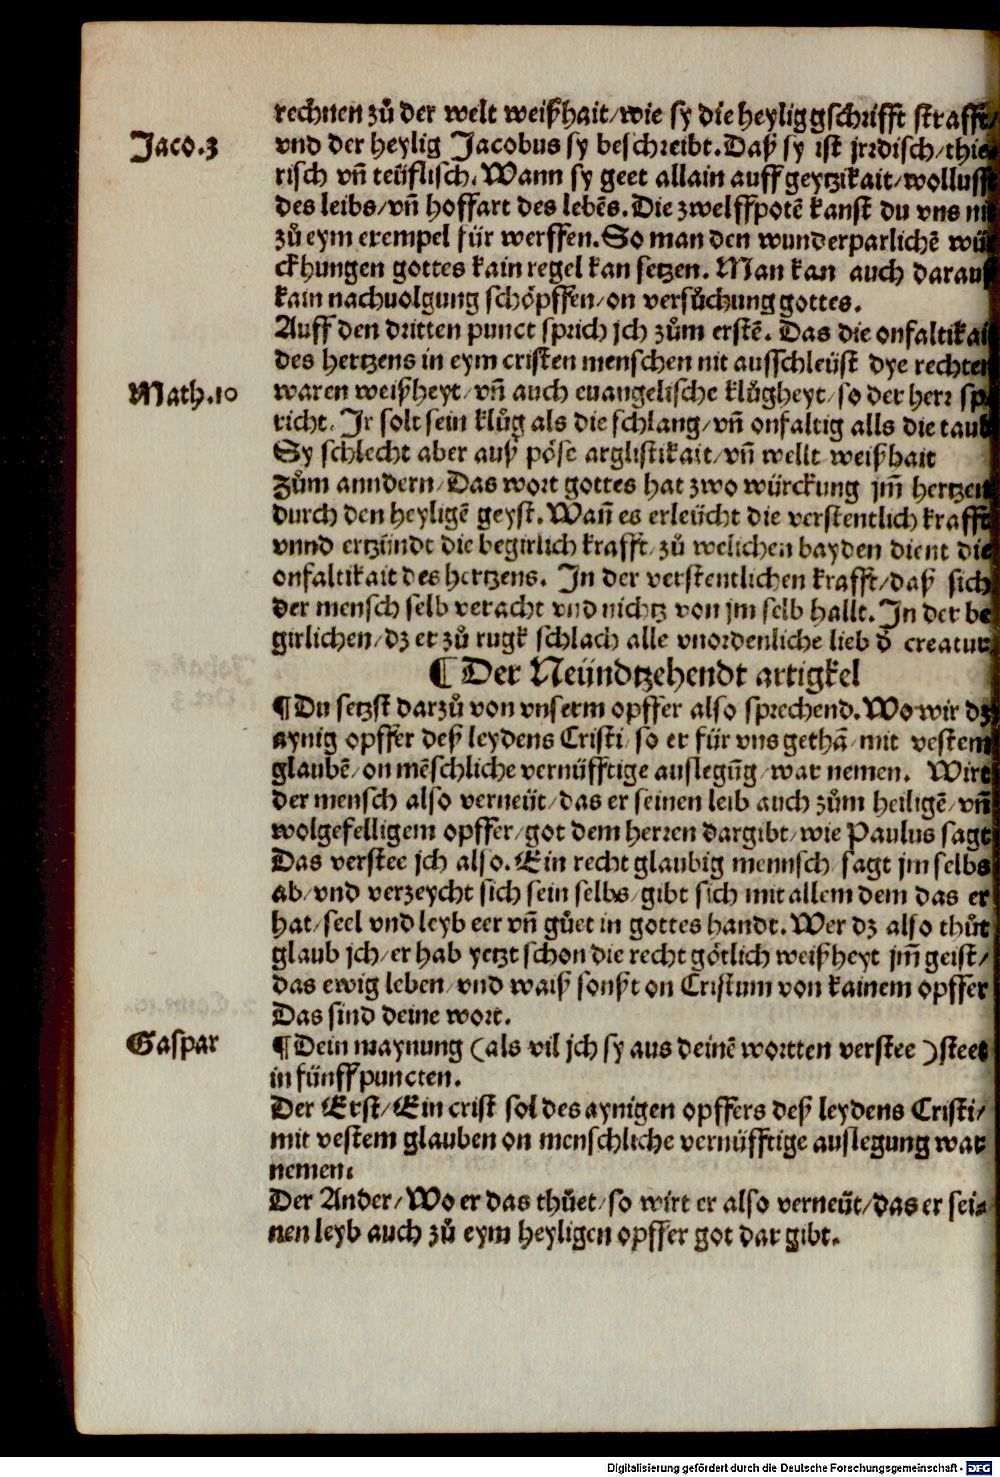 rechnen zů der welt weißhait/wie sy die heylig gschrifft strafft/
Jaco.3
vnd der heylig Jacobus sy beschreibt. Daß sy ist jrrdisch/thie
risch vñ teüflisch. Wann sy geet allain auff geytzikait/wollust
des leibs/vñ hoffart des lebẽs. Die zwelffpotẽ kanst du vns nit
zů eym exempel für werffen. So man den wunderparlichẽ wür
ckhungen gottes kain regel kan setzen. Man kan auch darauß
kain nachuolgung schöpffen/on versůchung gottes.
Auff den dritten punct sprich jch zům erstẽ. Das die onfaltikait
des hertzens in eym cristen menschen nit ausschleüst dye rechten
Math.10
waren weißheyt/vñ auch euangelische klůgheyt/so der herr sp
richt. Ir solt sein klůg als die schlang/vñ onfaltig alls die taub
Sy schlecht aber auß pöse arglistikait/vñ wellt weißhait
Zům anndern/Das wort gottes hat zwo würckung jm̃ hertzen
durch den heyligẽ geyst. Wañ es erleücht die verstentlich krafft
vnnd ertzündt die begirlich krafft/zů welichen bayden dient die
onfaltikait des hertzens. In der verstentlichen krafft/daß sich
der mensch selb veracht vnd nichtz von jm selb hallt. In der be
girlichen/dz er zů rugk schlach alle vnordenliche lieb d̕ creatur
¶ Der Neündtzehendt artigkel
¶ Du setzst darzů von vnserm opffer also sprechend. Wo wir dz
aynig opffer deß leydens Cristi/so er für vns gethã/mit vestem
glaubẽ/on mẽschliche vernüfftige auslegũg/war nemen. Wirt
der mensch also verneüt/das er seinen leib auch zům heiligẽ/vñ
wolgefelligem opffer/got dem herren dargibt/wie Paulus sagt
Das verstee jch also. Ein recht glaubig mennsch/sagt jm selbs
ab/vnd verzeycht sich sein selbs/gibt sich mit allem dem das er
hat/seel vnd leyb eer vñ gůet in gottes handt. Wer dz also thůt
glaub jch/er hab yetzt schon die recht götlich weißheyt jm̃ geist/
das ewig leben/vnd waiß sonst on Cristum von kainem opffer
Das sind deine wort.
Gaspar
¶ Dein maynung (als vil jch sy aus deinẽ wortten verstee) steet
in fünff puncten.
Der Erst/Ein crist sol des aynigen opffers deß leydens Cristi/
mit vestem glauben on menschliche vernüfftige auslegung war
nemen.
Der Ander/Wo er das thůet/so wirt er also verneüt/das er sei-
nen leyb auch zů eym heyligen opffer got dar gibt.
Digitalisierung gefördert durch die Deutsche Forschungsgemeinschaft - DFG